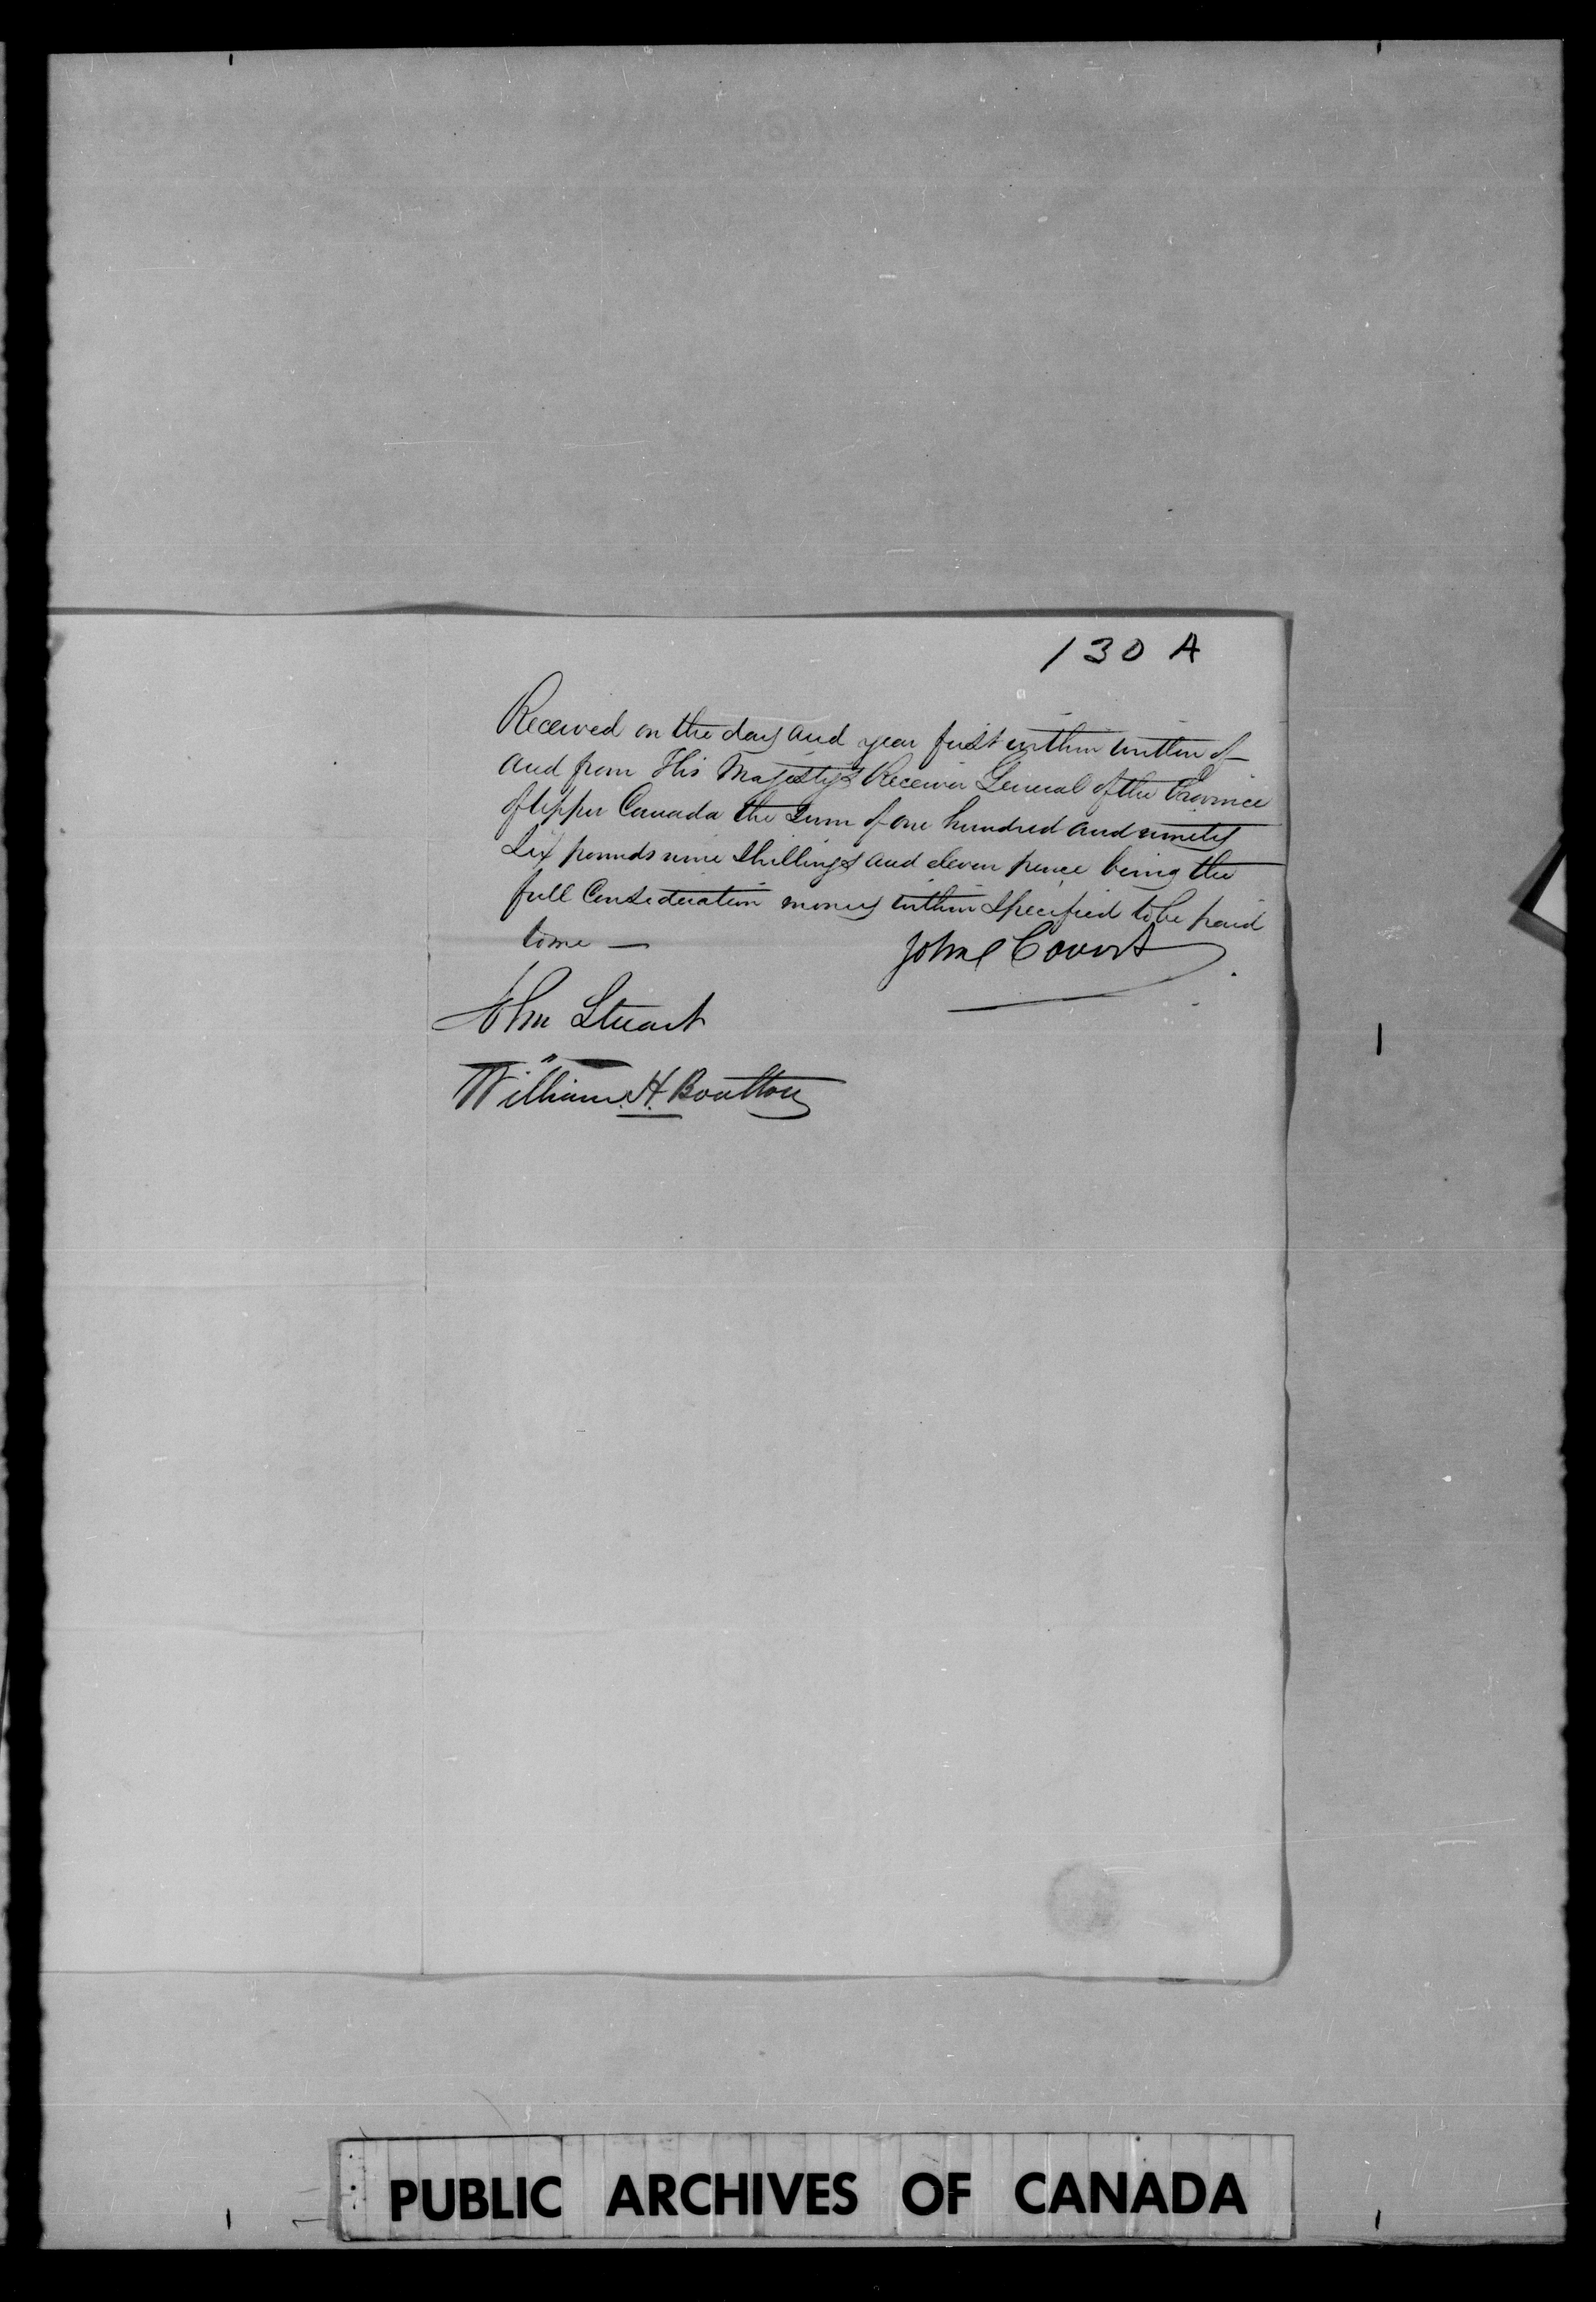 130 A
Received on the day and year first within written of
and from His Majesty's Receiver General of the Province
of Upper Canada the Sum of one hundred and ninety
Six pounds nine Shillings and eleven pence being the
full Consideration money within Specified to be paid
to me —
John Covert
John Stuart
William H. Boulton
PUBLIC ARCHIVES OF CANADA